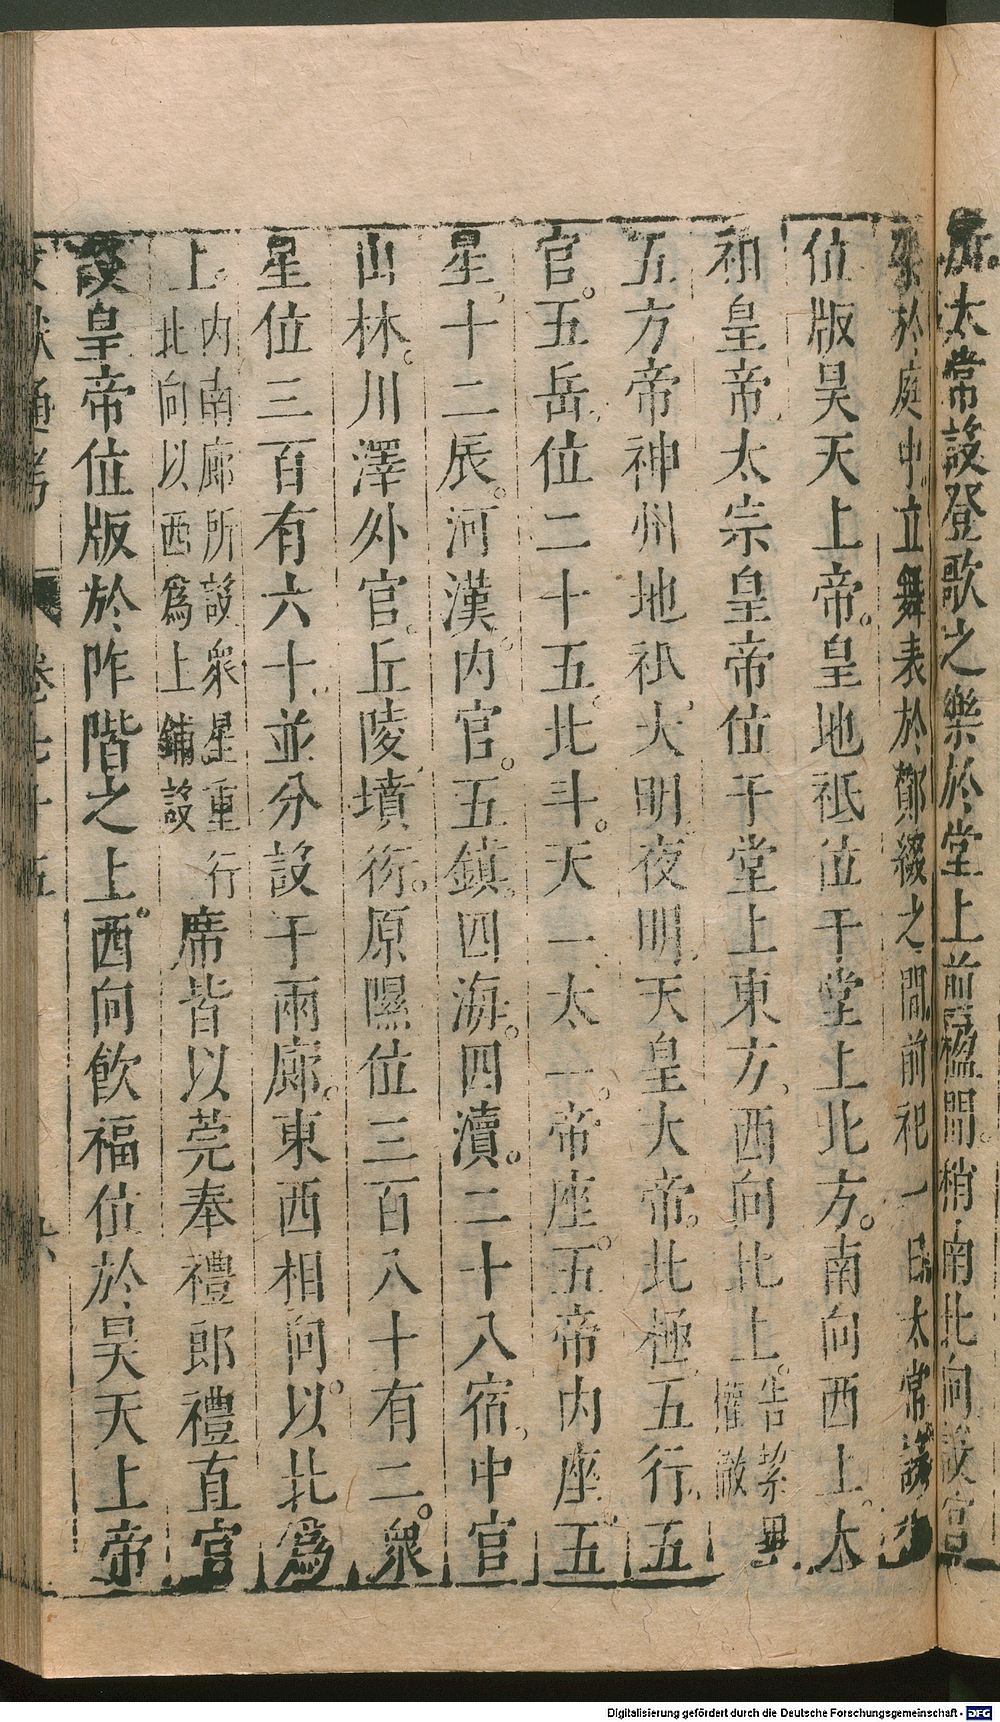 太常設登歌之樂於堂上前楹間稍南北向設宮
架於庭中立舞表於酇綴之間前祀一日太常設神
位版昊天上帝皇地祇位于堂上北方南向西上太
祖皇帝太宗皇帝位于堂上東方西向北上告潔畢權徹
五方帝神州地祇大明夜明天皇大帝北極五行五
官五岳位二十五北斗天一太一帝座五帝内座五
星十二辰河漢内官五鎮四海四瀆二十八宿中官
山林川澤外官丘陵墳衍原隰位三百八十有二衆
星位三百有六十並分設于兩廊東西相向以北為
上内南廊所設衆星重行北向以西為上鋪設席皆以莞奉禮郎禮直官
設皇帝位版於阼階之上西向飲福位於昊天上帝
文獻通考 卷七十五 六
Digitalisierung gefördert durch die Deutsche Forschungsgemeinschaft - DFG